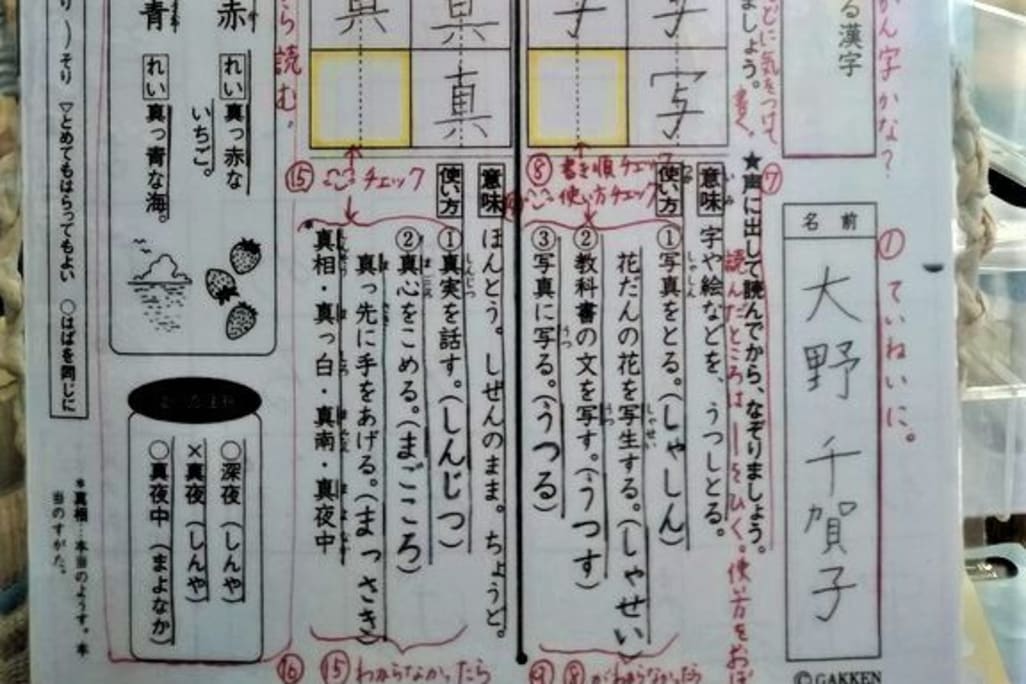 かん字かな？
① ていねいに。
る漢字
名前
大野 千賀子
©GAKKEN
どに気をつけて書く。
ましょう。
⑦
★声に出して読んでから、なぞりましょう。
読んだところは――をひく。使い方をおぼ
写
意味 字や絵などを、うつしとる。
使い方 ①写真をとる。(しゃしん)
花だんの花を写生する。(しゃせい)
②教科書の文を写す。(うつす)
③写真に写る。(うつる)
⑧ 書き順チェック
使い方チェック
⑨ ⑧がわからなかったら
真
意味 ほんとう。しぜんのまま。ちょうど。
使い方 ①真実を話す。(しんじつ)
②真心をこめる。(まごころ)
真っ先に手をあげる。(まっさき)
真相・真っ白・真南・真夜中
⑮ ここチェック
⑯ ⑮わからなかったら
ら読む。
赤
れい 真っ赤な
いちご。
青
れい 真っ青な海。
○深夜(しんや)
×真夜(しんや)
○真夜中(まよなか)
り ))そり ▽とめてもはらってもよい ○はばを同じに
*真相…本当のようす。本
当のすがた。